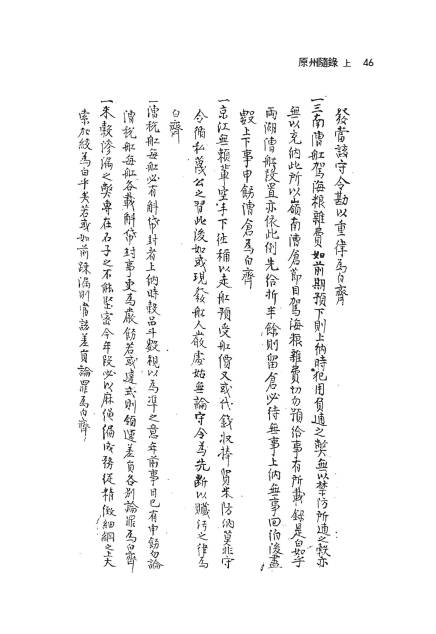 原州隨錄 上 46
發當該守令勘以重律爲白齊
一三南漕舡駕海粮雜費如前期預下則上納時犯用負逋之獘無以禁防所逋之穀亦
無以充納此所以嶺南漕倉節目駕海粮雜費切勿預給事有所載錄是白如乎
兩湖漕船設置亦依此例先給折半餘則留倉必待無事上納無事回泊後盡
數上下事申飭漕倉爲白齊
一京江無賴輩空手下徃稱以走舡預受舡價又或代錢收捧貿米防納莫非守
令循私蔑公之習此後如或現發舡人嚴處姑無論守令爲先斷以贓污之律爲
白齊
一漕稅舡每舡必有斛帒封者上納時較品斗數視以爲準之意年前事目已有申飭勿論
漕稅舡每舡各載斛帒封事更爲嚴飭若或違式則領運差員各別論罪爲白齊
一米穀滲漏之獘專在石子之不能堅密今年段必以麻傎編成務從精緻細綱之上大
索加絞爲白乎矣若或如前踈漏則當該差員論罪爲白齊